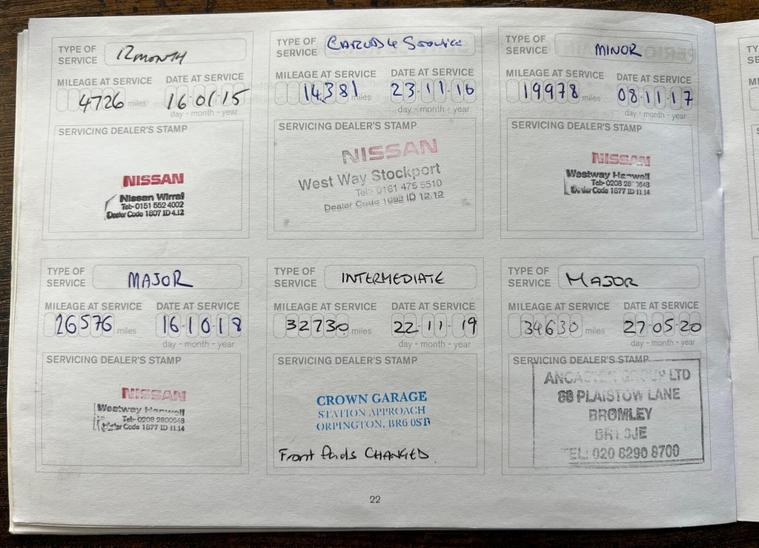 TYPE OF SERVICE 12 MONTH
MILEAGE AT SERVICE DATE AT SERVICE
4726 miles 16·01·15
day - month - year
SERVICING DEALER'S STAMP
NISSAN
Nissan Wirral
Tel- 0151 552 4002
Dealer Code 1807 ID 4.12
TYPE OF SERVICE Service
MILEAGE AT SERVICE DATE AT SERVICE
14381 miles 23·11·16
day - month - year
SERVICING DEALER'S STAMP
NISSAN
West Way Stockport
Tel- 0161 475 5510
Dealer Code 1692 ID 12.12
TYPE OF SERVICE MINOR
MILEAGE AT SERVICE DATE AT SERVICE
19978 miles 08·11·17
day - month - year
SERVICING DEALER'S STAMP
NISSAN
Westway Hanwell
Tel- 0208
Dealer Code 1877 ID 11.14
TYPE OF SERVICE MAJOR
MILEAGE AT SERVICE DATE AT SERVICE
26576 miles 16·10·18
day - month - year
SERVICING DEALER'S STAMP
NISSAN
Westway Hanwell
Tel- 0208
Dealer Code 1877 ID 11.14
TYPE OF SERVICE INTERMEDIATE
MILEAGE AT SERVICE DATE AT SERVICE
32730 miles 22·11·19
day - month - year
SERVICING DEALER'S STAMP
CROWN GARAGE
STATION APPROACH
ORPINGTON, BR6 0ST
Front Pads CHANGED.
TYPE OF SERVICE MAJOR
MILEAGE AT SERVICE DATE AT SERVICE
34630 miles 27·05·20
day - month - year
SERVICING DEALER'S STAMP
LTD
68 PLAISTOW LANE
BROMLEY
TEL: 020 8290 8700
22